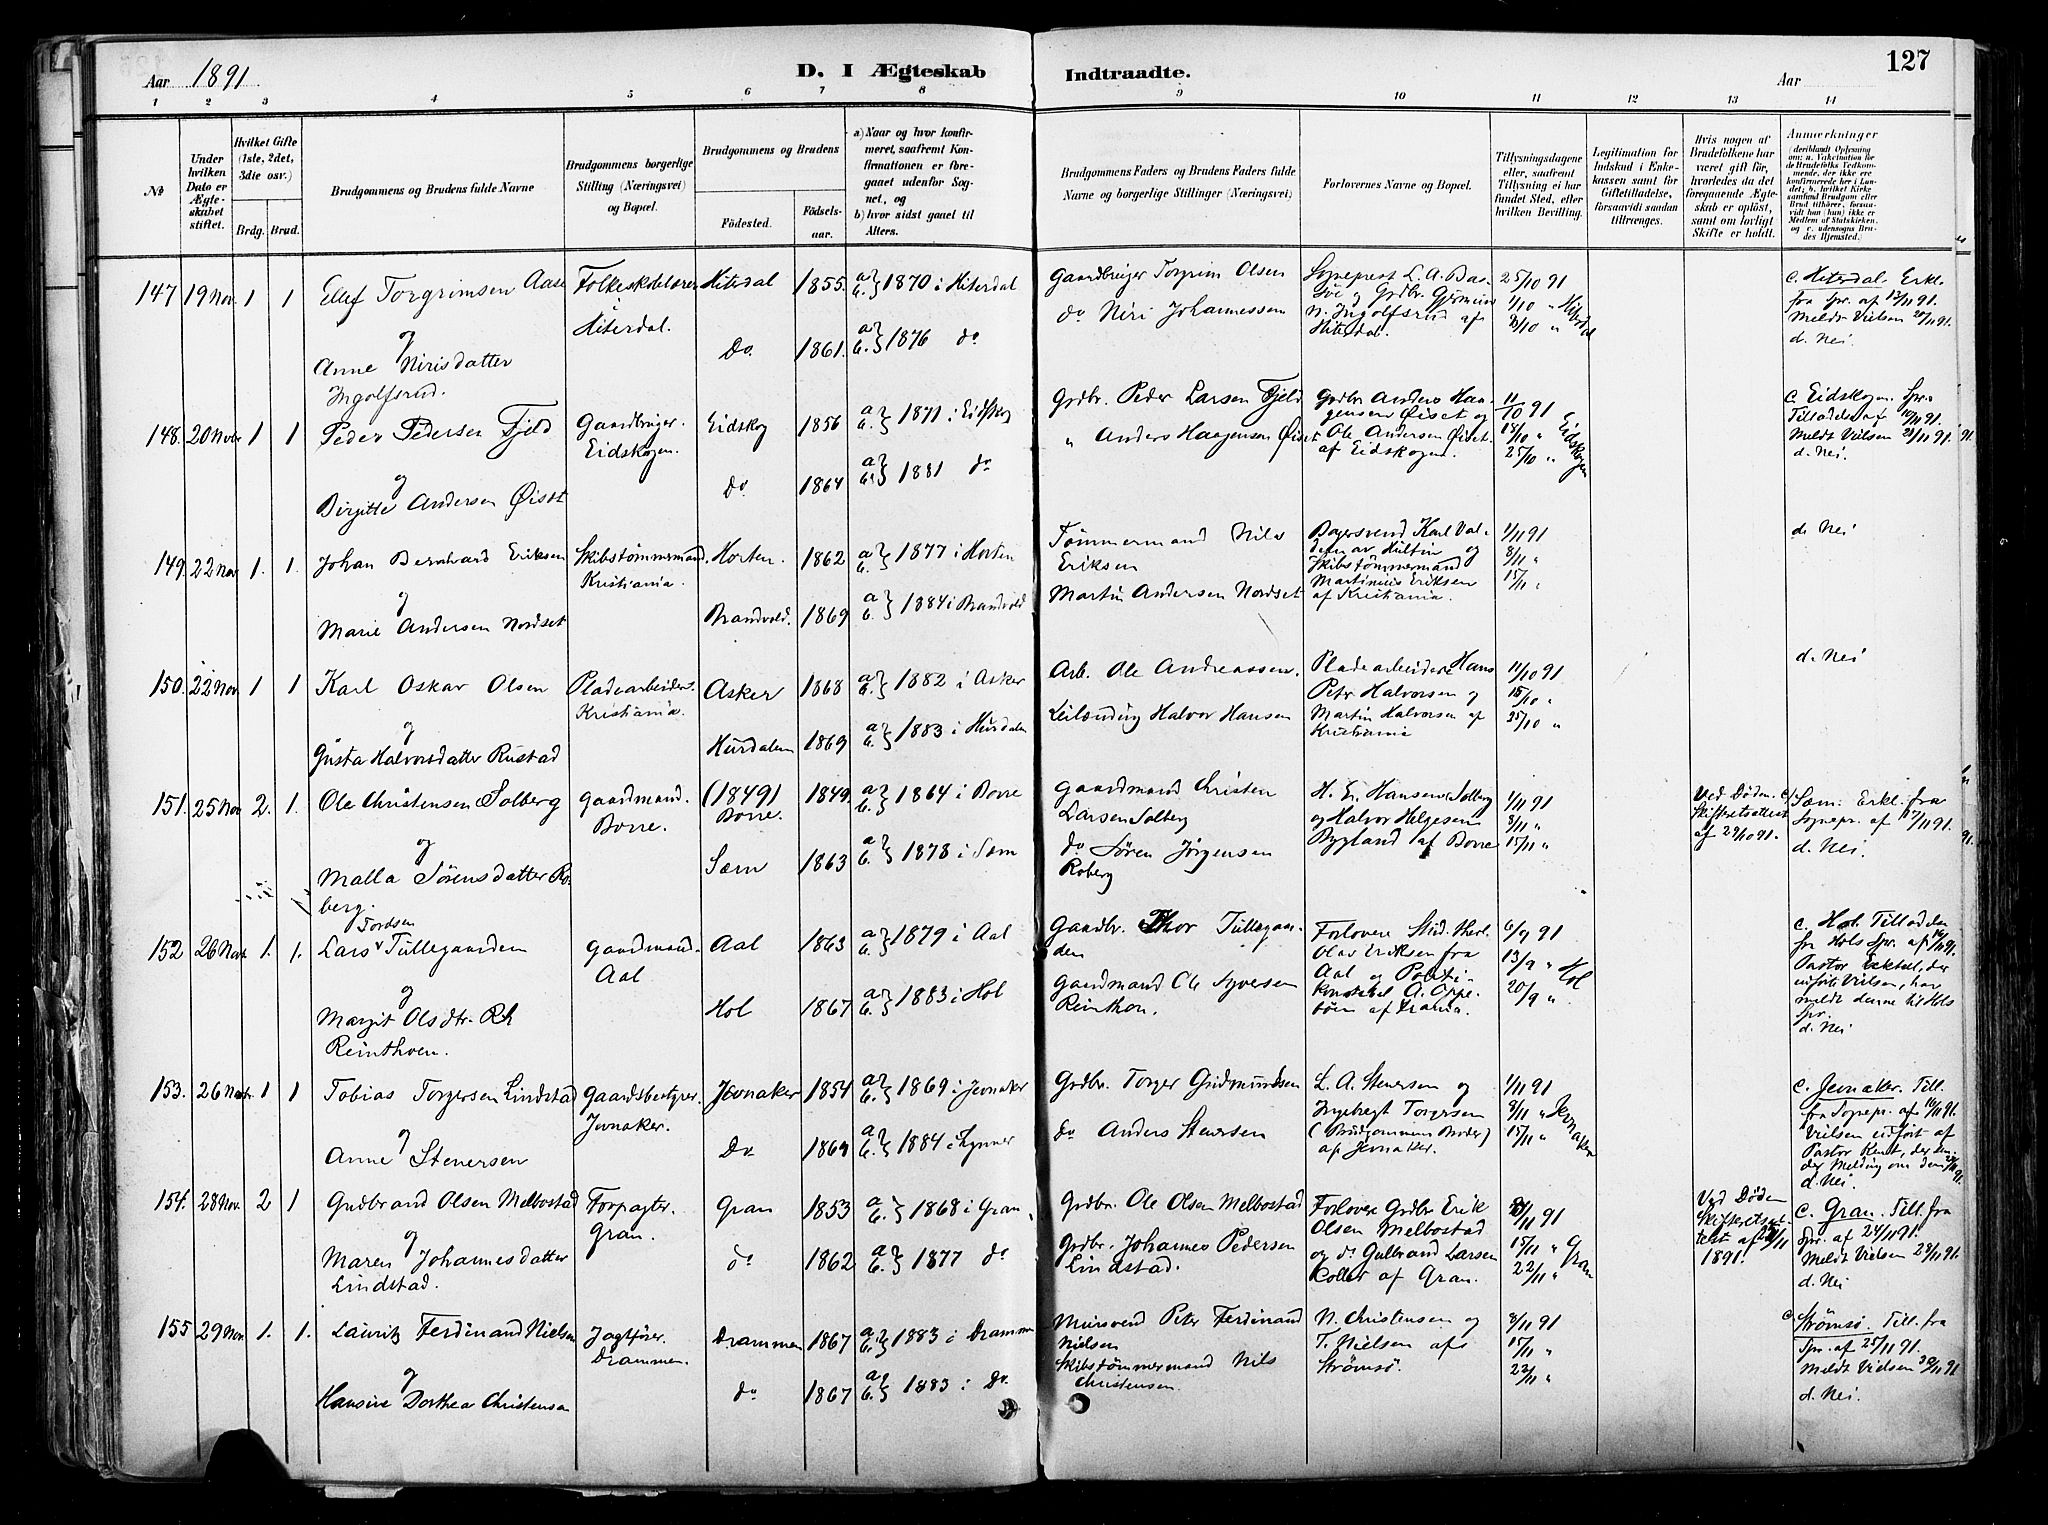 127
Aar 1891.
D. I Ægteskab Indtraadte.
Aar
1 2 3 4 5 6 7 8 9 10 11 12 13 14
No
Under hvilken Dato er Ægteskabet stiftet.
Hvilket Gifte (1ste, 2det, 3die osv.)
Brdg. Brud.
Brudgommens og Brudens fulde Navne
Brudgommens borgerlige Stilling (Næringsvei) og Bopæl.
Brudgommens og Brudens
Födested.
Födsels-aar.
a) Naar og hvor konfirmeret, saafremt Konfirmationen er foregaaet udenfor Sognet, og
b) hvor sidst gaaet til Alters.
Brudgommens Faders og Brudens Faders fulde Navne og borgerlige Stillinger (Næringsvei)
Forlovernes Navne og Bopæl.
Tillysningsdagene eller, saafremt Tillysning ei har fundet Sted, efter hvilken Bevilling.
Legitimation for Indskud i Enkekassen samt for Giftetilladelse, forsaavidt saadan tiltrænges.
Hvis nogen af Brudefolkene har været gift för, hvorledes da det foregaaende Ægteskab er oplöst, samt om lovligt Skifte er holdt.
Anmærkninger (deriblandt Oplysning om: a. Vaccination for de Brudefolks Vedkommende, der ikke ere konfirmerede her i Landet; b. hvilket Kirkesamfund Brudgom eller Brud tilhörer, forsaavidt han (hun) ikke er Medlem af Statskirken, og c. udensogns Brudes Hjemsted.)
147 19 Nov. 1 1 Ellef Torgrimsen Aase Folkeskolelærer Hiterdal 1855. a b} 1870 i Hiterdal Gaardbruger Torgrim Olsen Sogneprest L. A. 25/10 91 c. Hiterdal. Erkl.
og Hiterdal. Grdbr. 1/10 " Hiterdal fra Spr. af 17/11 91.
Anne Nirisdatter Do. 1861. a b.} 1876 do do Niri Johannessen N. Ingolfsrud af Meldt Vielsen 20/11 91.
Ingolfsrud. Hiterdal. d. Nei.
148. 20 Novbr 1 1 Peder Pedersen Fjeld Gaardbruger. Eidskog 1856 a b} 1871 i Eidskog Grdbr. Peder Larsen Fjeld Grdbr Anders Haa- 11/10 91 c. Eidskogen. Spr.
og Eidskogen. gensen Øiset og 18/10 " Eidskogen Tilladelse af 10/11 91.
Birgitte Andersen Øiset Do 1864 a b} 1881 do " Anders Haagensen Øiset Ole Andersen Øiset 25/10 " Meldt Vielsen 21/11 91.
af Eidskogen. d. Nei.
149. 22 Nov 1. 1. Johan Bernhard Eriksen Skibstømmermand. Horten. 1862 a b} 1877 i Horten Tømmermand Nils Bagersvend Karl Val- 1/11 91 d. Nei
og Kristiania. Eriksen demar Hultin og 8/11 "
Marie Andersen Nordset Brandvold. 1869 a b.} 1884 i Brandvold Martin Andersen Nordset Skibstømmermand 15/11 "
Martinius Eriksen
af Kristiania.
150. 22 Nov. 1 1 Karl Oskar Olsen Pladearbeider. Asker 1868 a b} 1882 i Asker Arb. Ole Andreassen. Pladearbeidere Hans 11/10 91 d. Nei
og Kristiania. Petr Halvorsen og 18/10 "
Gusta Halvorsdatter Rustad Hurdalen 1869 a b.} 1883 i Hurdalen Leilænding Halvor Hansen Martin Halvorsen af 25/10 "
Kristiania
151. 25 Nov 2. 1. Ole Christensen Solberg Gaardmand. (1849) 1849. a b} 1864 i Borre Gaardmand Christen H. E. Hansen Solberg 1/11 91 Ved Døden. c. Sæm. Erkl. fra
og Borre. Borre. Larsen Solberg og Halvor Helgesen 8/11 " Skifteretsattest Sognepr. af 17/11 91.
Malla Sørensdatter Ro- Sæm 1863 a b} 1878 i Sæm do Søren Jørgensen Bygland af Borre 15/11 " af 29/10 91. d. Nei.
berg. Roberg
152 26 Nov. 1. 1. Lars Tordsen Tullegaarden Gaardmand. Aal 1863 a b} 1879 i Aal Gaardbr. Thor Tullegaar- Forlovere Stud. theol. 6/9 91 c. Hol. Tilladelse
og Aal den Olas Eriksen fra 13/9 " Hol fra Hols Spr. af
Margit Olsdtr. Hol 1867 a b.} 1883 i Hol Gaardmand Ole Syversen Aal og Politi- 20/9 " Pastor der
Reinthoen. Reinthon. konstabel A. Oppe- udførte Vielsen, har
af Krania. meldt denne til Hols
Spr.
d. Nei
153. 26 Novbr. 1 1 Tobias Torgersen Lindstad Gaardsbestyrer Jevnaker 1854 a b.} 1869 i Jevnaker Grdbr. Torger Gudmundsen L. A. Stenersen og 1/11 91 c. Jevnaker. Till.
og Jevnaker. Ingebregt Torgersen 8/11 " Jevnaker fra Sognepr. af 16/11 91.
Anne Stenersen Do 1864 a b.} 1884 i Lynner do Anders Stenersen (Brudgommens Broder) 15/11 " Vielsen udført af
af Jevnaker. Pastor der sen-
der Melding om den
d. Nei.
154. 28 Nov. 2 1 Gudbrand Olsen Melbostad Forpagter. Gran 1853 a b.} 1868 i Gran. Grdbr. Ole Olsen Melbostad Forlovere Grdbr Erik 8/11 91 Ved Døden c. Gran. Till. fra
og Gran. Olsen Melbostad 15/11 " Gran Skifteretsat- Spr. af 24/11 91.
Maren Johannesdatter do 1862 a b.} 1877 do Grdbr. Johannes Pedersen og do Gulbrand Larsen 22/11 " test af 1891. Meldt Vielsen 28/11 91.
Lindstad. Lindstad. Koller af Gran. d. Nei
155 29 Nov. 1. 1. Lauritz Ferdinand Nielsen Jagtfører. Drammen 1867 a b.} 1883 i Drammen Mursvend Peter Ferdinand N. Christensen og 8/11 91 c. Strømsø. Till. fra
og Drammen. Nielsen T. Nielsen af 15/11 " Spr. af 25/11 91.
Hansine Dorthea Christensen do 1867 a b} 1883 i Do Skibstømmermand Nils Strømsø. 22/11 " Meldt Vielsen 30/11 91.
Christensen. d. Nei.